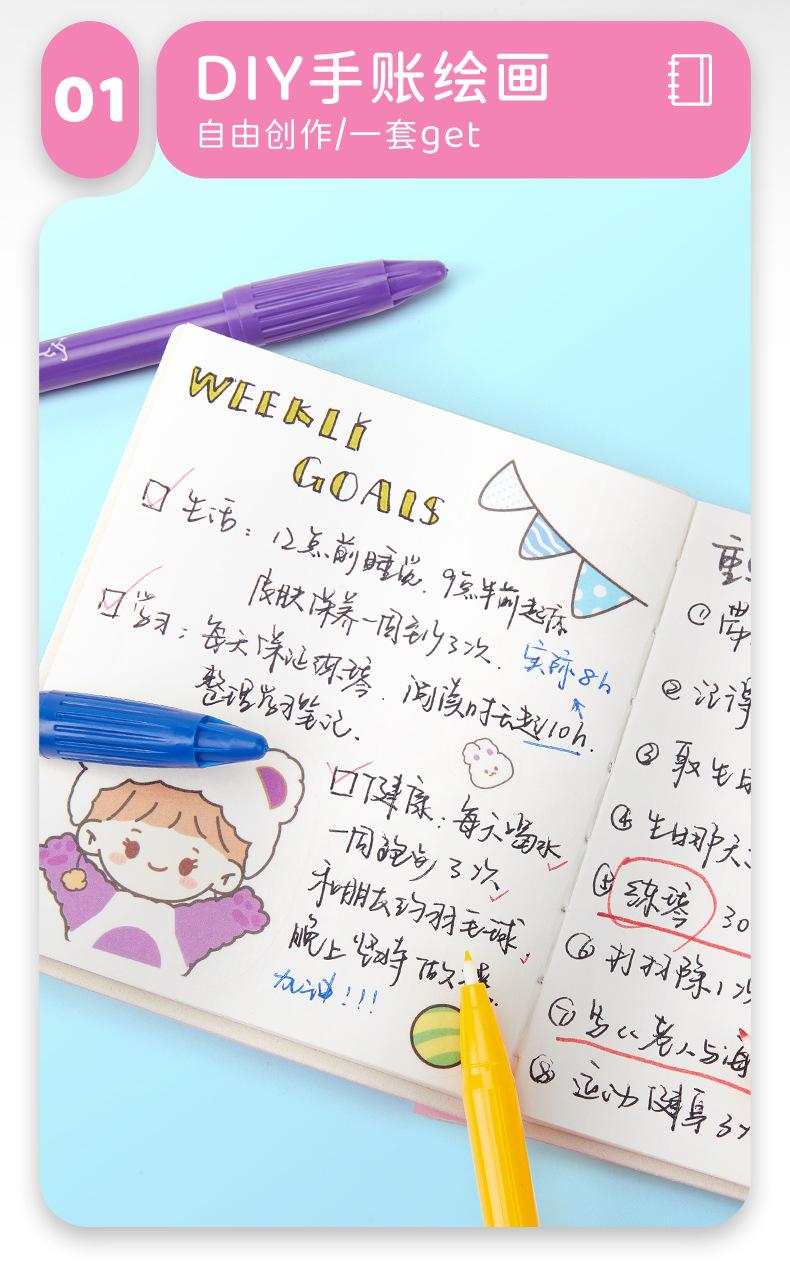 01
DIY手账绘画
自由创作/一套get
WEEKLY
GOALS
生活：12点前睡觉．9点半前起床
皮肤保养一周到少3次．
实际8h
学习：每天保证练琴．阅读时长超10h．
整理学习笔记．
健康：每天喝水
一周跑步3次
和朋友约羽毛球．
晚上坚持做
加油！！！
重
① 带
② 记得
③ 取生日
④ 生日那天
⑤ 练琴 30
⑥ 打扫除1次
⑦ 老人与海
⑧ 运动健身3次